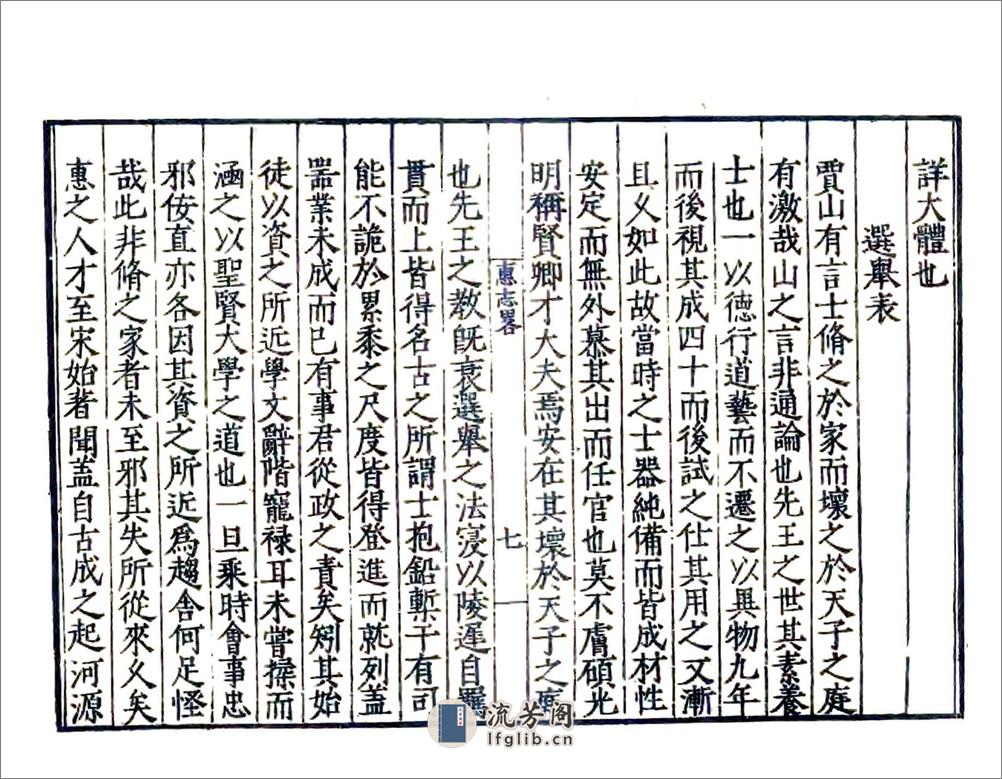 詳大體也
選舉表
賈山有言士脩之於家而壞之於天子之庭
有激哉山之言非通論也先王之世其素養
士也一以德行道藝而不遷之以異物九年
而後視其成四十而後試之仕其用之又漸
且乆如此故當時之士器純備而皆成材性
安定而無外慕其出而任官也莫不膚碩光
明稱賢卿才大夫焉安在其壞於天子之庭
惠志畧
七
也先王之教旣衰選舉之法寖以陵遲自羈
貫而上皆得名古之所謂士抱鉛槧于有司
能不詭於累黍之尺度皆得登進而就列盖
噐業未成而已有事君從政之責矣矧其始
徒以資之所近學文辭階寵禄耳未嘗揉而
涵之以聖賢大學之道也一旦乘時會事忠
邪佞直亦各因其資之所近爲趨舍何足恠
哉此非脩之家者未至邪其失所從來乆矣
惠之人才至宋始著聞盖自古成之起河源
流芳阁
lfglib.cn